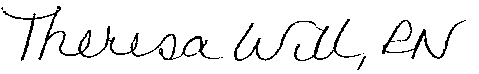 Theresa Will, RN